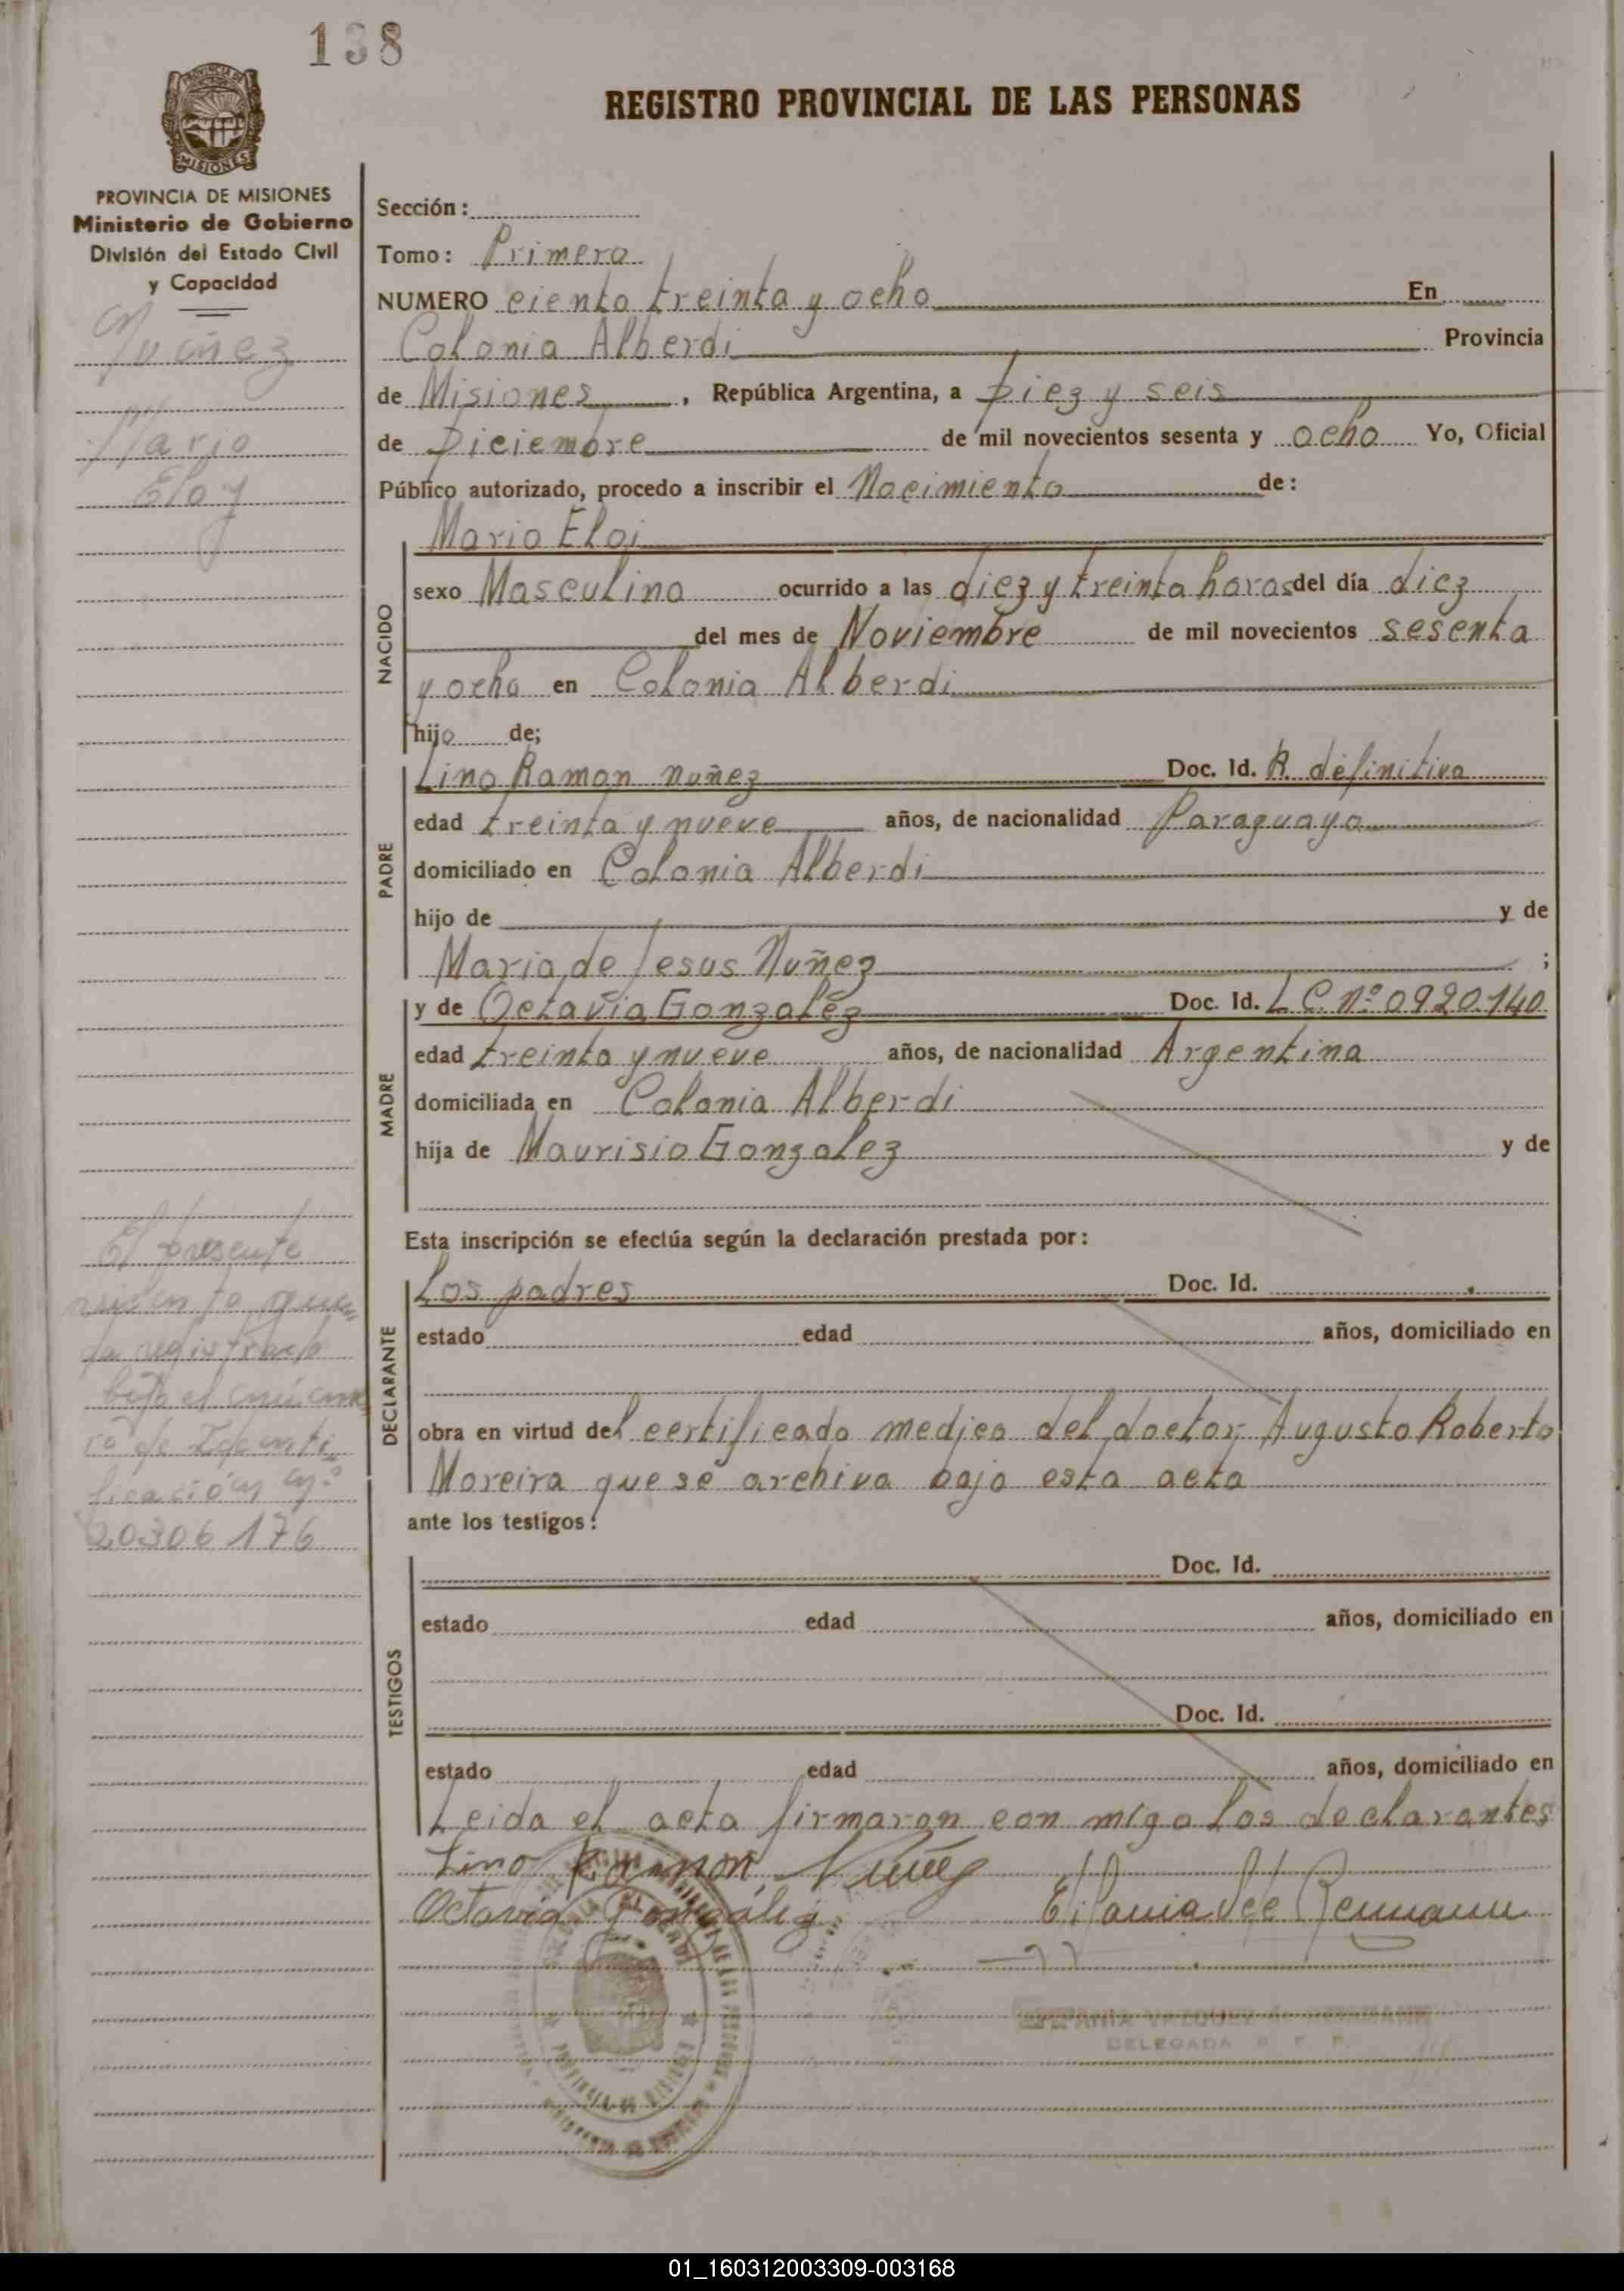 138
REGISTRO PROVINCIAL DE LAS PERSONAS
PROVINCIA DE MISIONES
Ministerio de Gobierno
División del Estado Civil
y Capacidad
Nuñez
Mario
Eloy
Sección:
Tomo: Primero
NUMERO ciento treinta y ocho En
Colonia Alberdi Provincia
de Misiones, República Argentina, a Diez y seis
de Diciembre de mil novecientos sesenta y ocho Yo, Oficial
Público autorizado, procedo a inscribir el Nacimiento de:
Mario Eloi
NACIDO
sexo Masculino ocurrido a las diez y treinta horas del día diez
del mes de Noviembre de mil novecientos sesenta
y ocho en Colonia Alberdi
hijo de;
PADRE
Lino Ramon Nuñez Doc. Id. R. definitiva
edad treinta y nueve años, de nacionalidad Paraguaya
domiciliado en Colonia Alberdi
hijo de y de
Maria de Jesus Nuñez ;
MADRE
y de Octavia Gonzalez Doc. Id. L C. Nº 0920.140
edad treinta y nueve años, de nacionalidad Argentina
domiciliada en Colonia Alberdi
hija de Maurisio Gonzalez y de
Esta inscripción se efectúa según la declaración prestada por:
DECLARANTE
Los padres Doc. Id.
estado edad años, domiciliado en
obra en virtud del certificado medico del doctor Augusto Roberto
Moreira que se archiva bajo esta acta
ante los testigos:
El presente
que
da registrado
bajo el núme
ro de Identi
ficación nº
20306176
TESTIGOS
Doc. Id.
estado edad años, domiciliado en
Doc. Id.
estado edad años, domiciliado en
Leida el acta firmaron con migo los declarantes
Lino Ramon Nuñez
Octavia González
DELEGADA
01_160312003309-003168